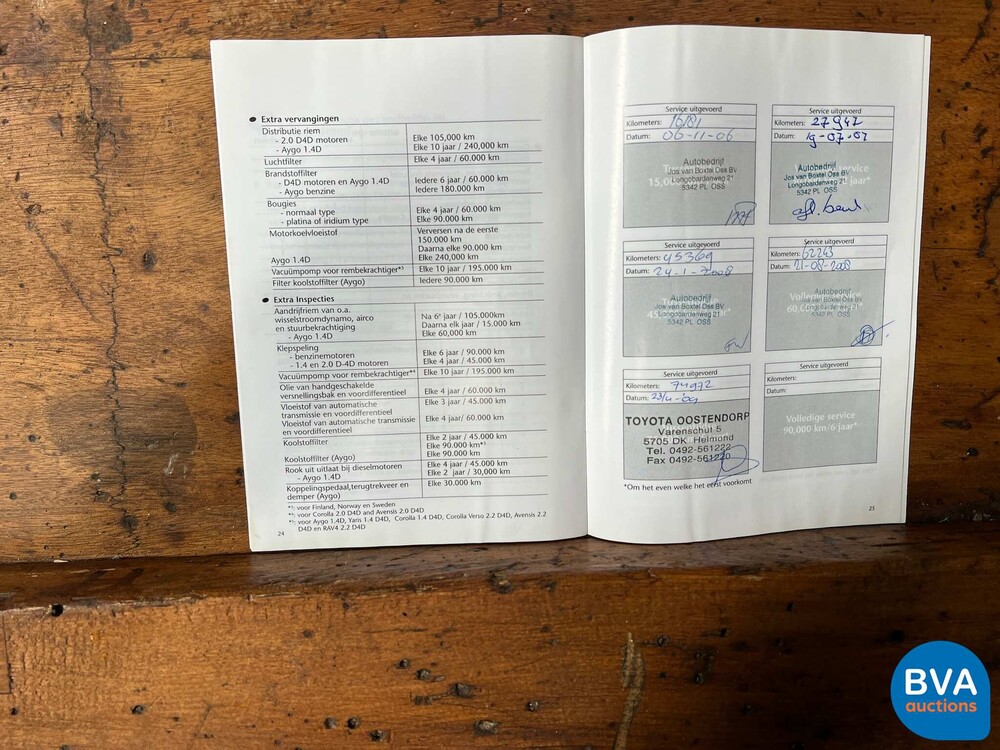 Extra vervangingen
Distributie riem
- 2.0 D4D motoren Elke 105,000 km
- Aygo 1.4D Elke 10 jaar / 240,000 km
Luchtfilter Elke 4 jaar / 60.000 km
Brandstoffilter
- D4D motoren en Aygo 1.4D Iedere 6 jaar / 60.000 km
- Aygo benzine Iedere 180.000 km
Bougies
- normaal type Elke 4 jaar / 60.000 km
- platina of iridium type Elke 90.000 km
Motorkoelvloeistof Verversen na de eerste
150.000 km
Daarna elke 90.000 km
Aygo 1.4D Elke 240,000 km
Vacuümpomp voor rembekrachtiger*³ Elke 10 jaar / 195.000 km
Filter koolstoffilter (Aygo) Iedere 90.000 km
Extra Inspecties
Aandrijfriem van o.a.
wisselstroomdynamo, airco Na 6e jaar / 105.000km
en stuurbekrachtiging Daarna elk jaar / 15.000 km
- Aygo 1.4D Elke 60,000 km
Klepspeling
- benzinemotoren Elke 6 jaar / 90.000 km
- 1.4 en 2.0 D-4D motoren Elke 4 jaar / 45.000 km
Vacuümpomp voor rembekrachtiger*⁴ Elke 10 jaar / 195.000 km
Olie van handgeschakelde
versnellingsbak en voordifferentieel Elke 4 jaar / 60.000 km
Vloeistof van automatische Elke 3 jaar / 45.000 km
transmissie en voordifferentieel
Vloeistof van automatische transmissie Elke 4 jaar/ 60.000 km
en voordifferentieel
Koolstoffilter Elke 2 jaar / 45.000 km
Elke 90.000 km*³
Koolstoffilter (Aygo) Elke 90.000 km
Rook uit uitlaat bij dieselmotoren Elke 4 jaar / 45.000 km
- Aygo 1.4D Elke 2 jaar / 30,000 km
Koppelingspedaal,terugtrekveer en Elke 30.000 km
demper (Aygo)
voor Finland, Norway en Sweden
voor Corolla 2.0 D4D and Avensis 2.0 D4D
voor Aygo 1.4D, Yaris 1.4 D4D, Corolla 1.4 D4D, Corolla Verso 2.2 D4D, Avensis 2.2
D4D en RAV4 2.2 D4D
24
Service uitgevoerd
Kilometers: 16181
Datum: 06-11-06
15,0
Autobedrijf
Jos van Boxtel Oss BV
Longobardenweg 21
5342 PL OSS
Service uitgevoerd
Kilometers: 27947
Datum: 19-07-07
service
jaar*
Autobedrijf
Jos van Boxtel Oss BV
Longobardenweg 21
5342 PL OSS
Service uitgevoerd
Kilometers: 45369
Datum: 24-1-2008
45
Autobedrijf
Jos van Boxtel Oss BV
Longobardenweg 21
5342 PL OSS
Service uitgevoerd
Kilometers: 62243
Datum: 21-08-2008
Volle
60,0
Autobedrijf
Jos van Boxtel Oss BV
Longobardenweg
5342 PL OSS
Service uitgevoerd
Kilometers: 74972
Datum: 23/4-'09
TOYOTA OOSTENDORP
Varenschut 5
5705 DK Helmond
Tel. 0492-561222
Fax 0492-561220
Service uitgevoerd
Kilometers:
Datum:
Volledige service
90,000 km/6 jaar*
*Om het even welke het eerst voorkomt
25
BVA
auctions